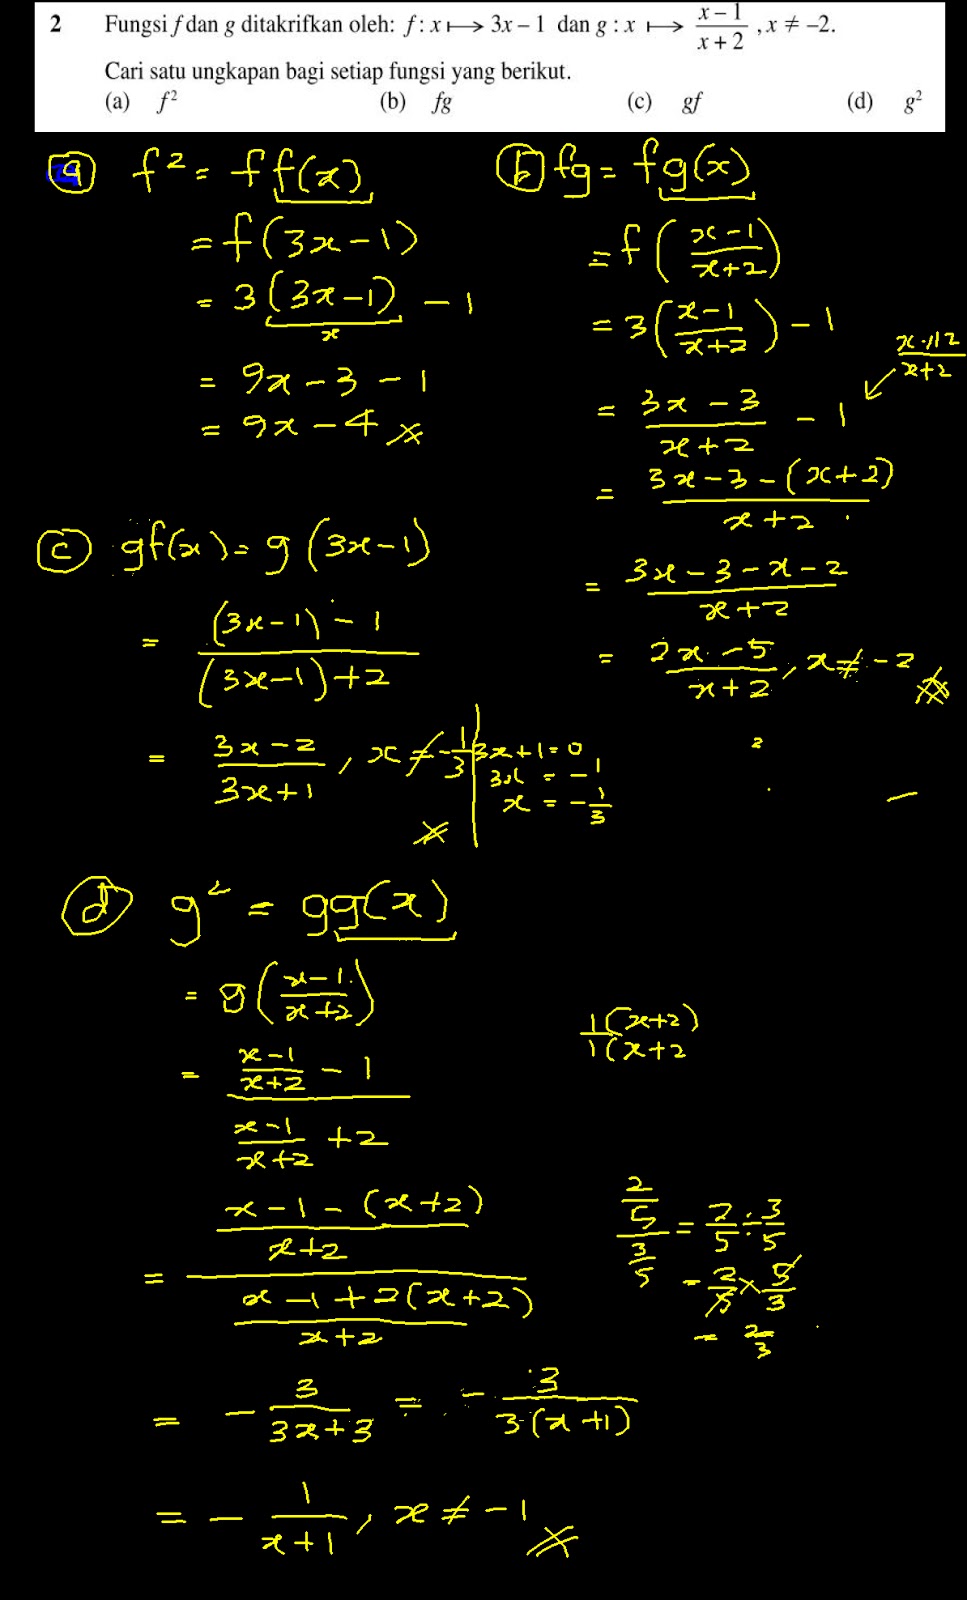 2 Fungsi f dan g ditakrifkan oleh: f : x ⟼ 3x – 1 dan g : x ⟼ (x – 1)/(x + 2) , x ≠ –2.
Cari satu ungkapan bagi setiap fungsi yang berikut.
(a) f² (b) fg (c) gf (d) g²
ⓐ f² = ff(x)
= f(3x – 1)
= 3(3x – 1) – 1
x
= 9x – 3 – 1
= 9x – 4
ⓑ fg = fg(x)
= f((x – 1)/(x + 2))
= 3((x – 1)/(x + 2)) – 1
= (3x – 3)/(x + 2) – 1
= (3x – 3 – (x + 2))/(x + 2)
= (3x – 3 – x – 2)/(x + 2)
= (2x – 5)/(x + 2), x ≠ – 2
ⓒ gf(x) = g(3x – 1)
= ((3x – 1) – 1)/((3x – 1) + 2)
= (3x – 2)/(3x + 1), x ≠ –1/3
3x + 1 = 0
3x = – 1
x = – 1/3
ⓓ g² = gg(x)
= g((x – 1)/(x + 2))
= ((x – 1)/(x + 2) – 1)/((x – 1)/(x + 2) + 2)
1(x + 2)/1(x + 2
= ((x – 1 – (x + 2))/(x + 2))/((x – 1 + 2(x + 2))/(x + 2))
(2/5)/(3/5) = 2/5 ÷ 3/5
= 2/5 × 5/3
= 2/3
= – 3/(3x + 3) = – 3/(3(x + 1))
= – 1/(x + 1), x ≠ – 1